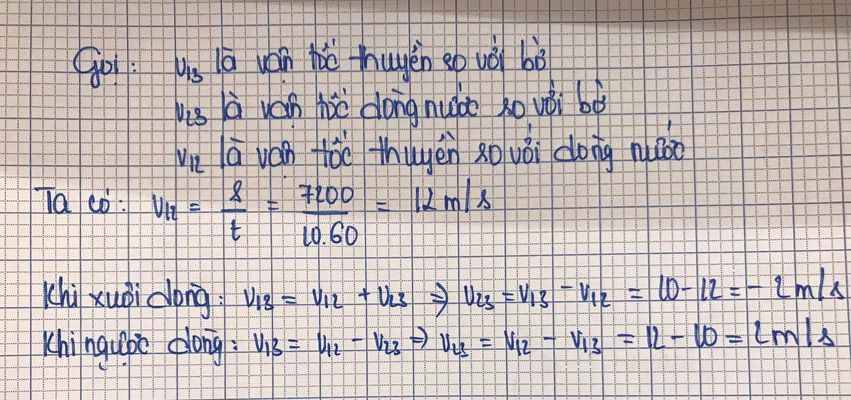 Gọi: v₁₃ là vận tốc thuyền so với bờ
v₂₃ là vận tốc dòng nước so với bờ
v₁₂ là vận tốc thuyền so với dòng nước
Ta có: v₁₂ = s/t = 7200/10.60 = 12 m/s
Khi xuôi dòng: v₁₃ = v₁₂ + v₂₃ ⇒ v₂₃ = v₁₃ - v₁₂ = 10 - 12 = - 2 m/s
Khi ngược dòng: v₁₃ = v₁₂ - v₂₃ ⇒ v₂₃ = v₁₂ - v₁₃ = 12 - 10 = 2 m/s